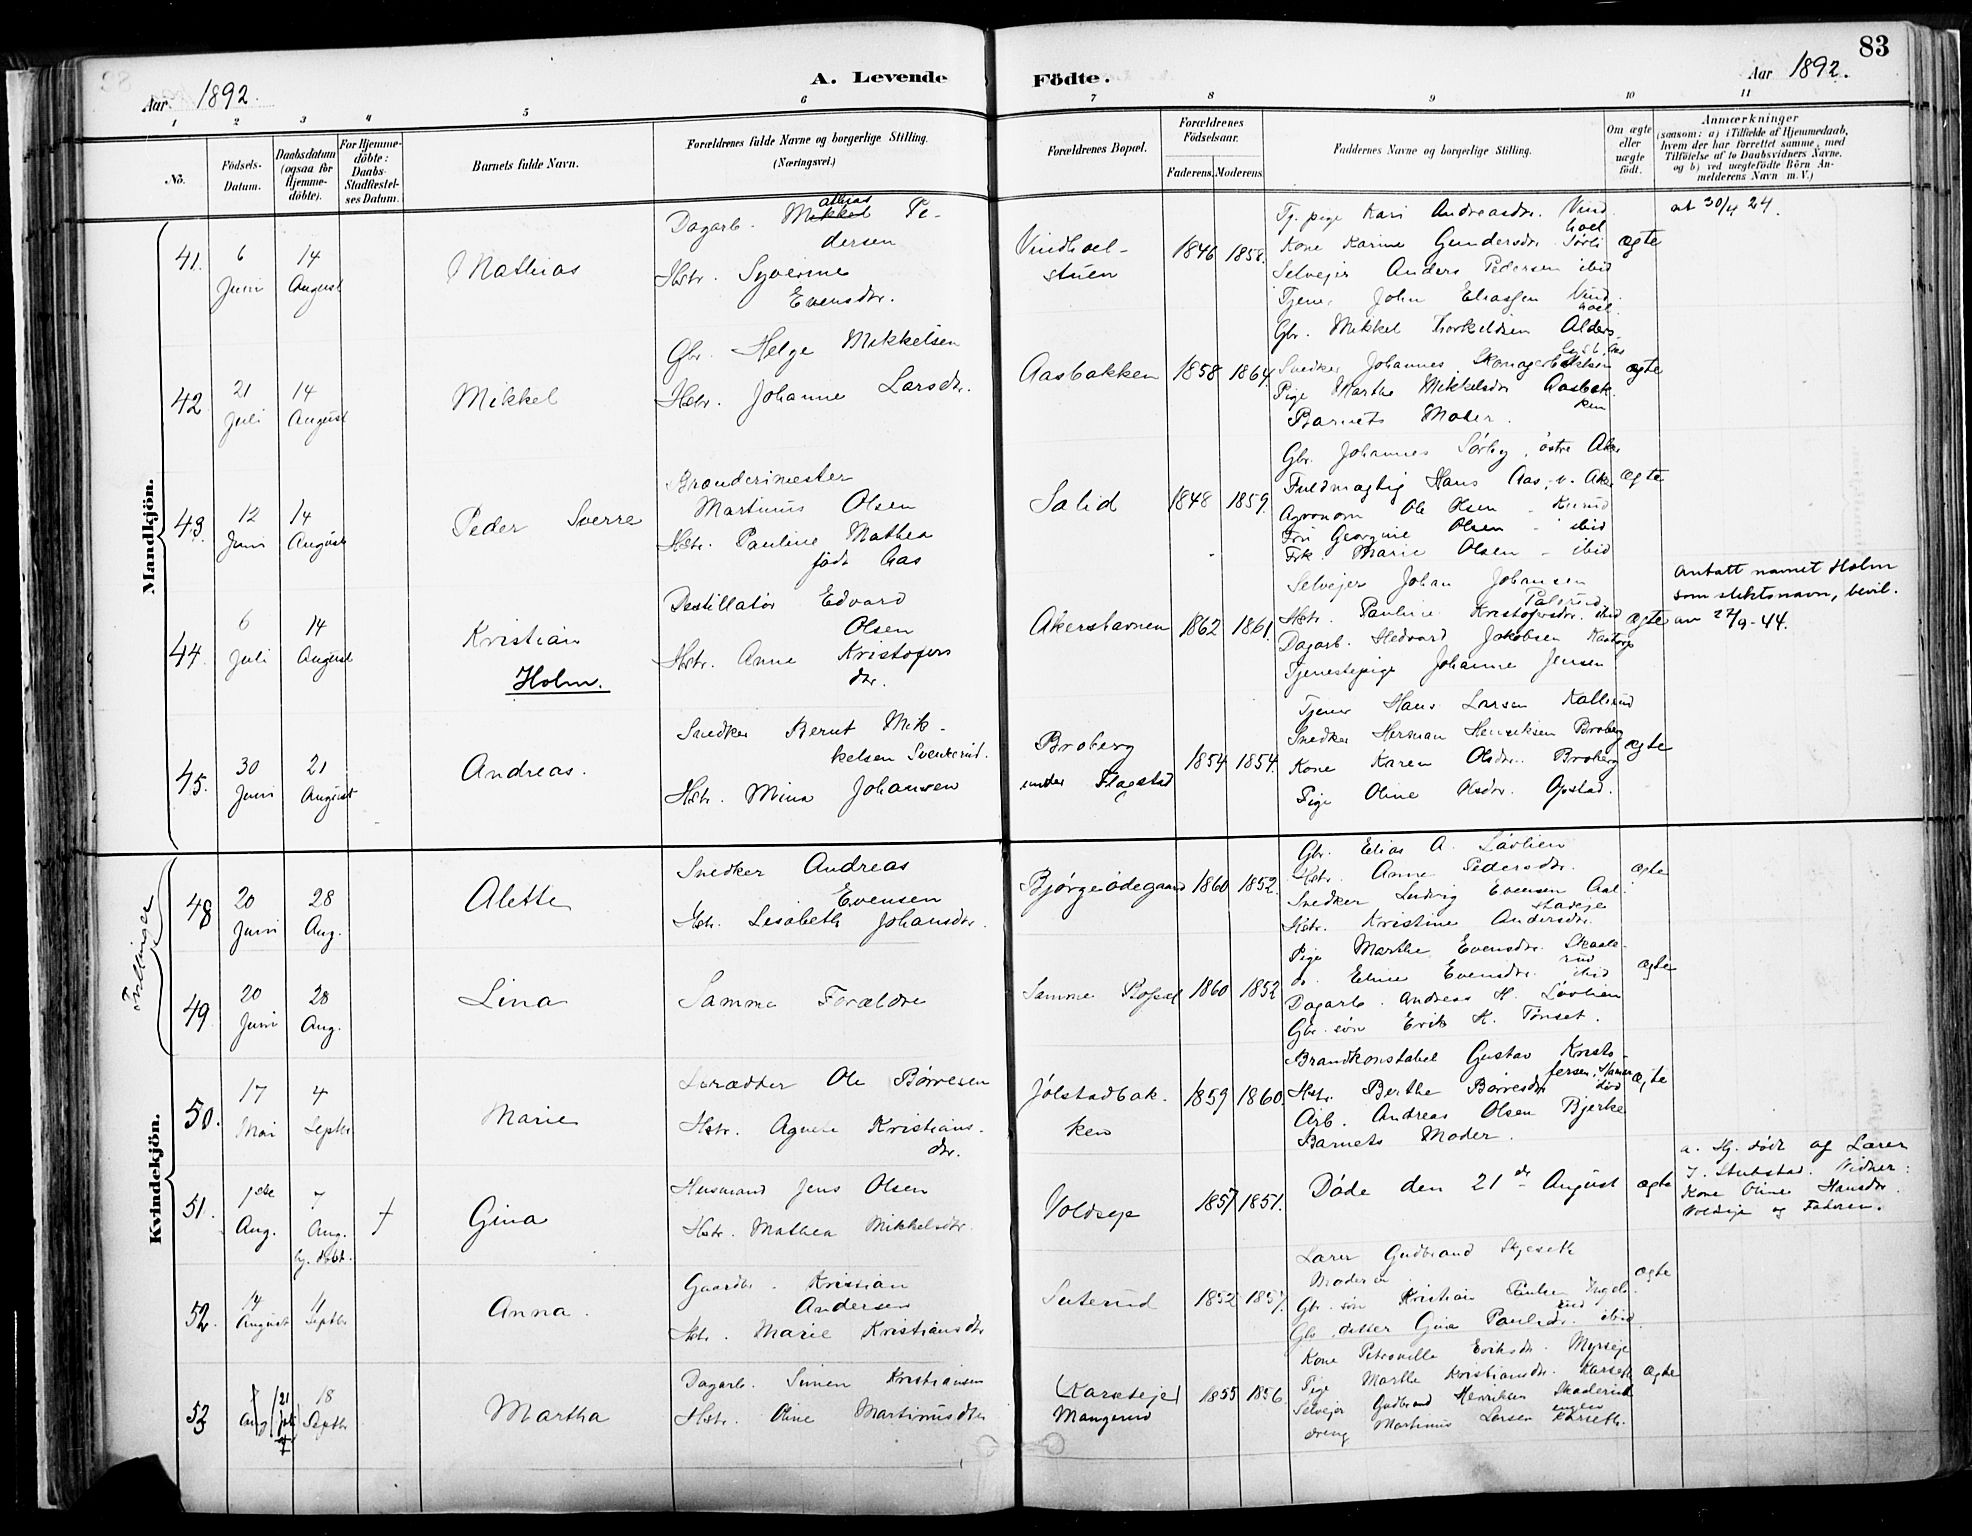 83
Aar 1892.
A. Levende Födte.
Aar 1892.
1 2 3 4 5 6 7 8 9 10 11
No.
Födsels-Datum.
Daabsdatum (ogsaa for Hjemme-döbte).
For Hjemme-döbte: Daabs-Stadfæstel-ses Datum.
Barnets fulde Navn.
Forældrenes fulde Navne og borgerlige Stilling. (Næringsvei.)
Forældrenes Bopæl.
Forældrenes Födselsaar.
Faderens. Moderens.
Faddernes Navne og borgerlige Stilling.
Om ægte eller uægte födt.
Anmærkninger
(saasom: a) i Tilfælde af Hjemmedaab, hvem der har forrettet samme, med Tilföielse af to Daabsvidners Navne, og b) ved uægtefödte Börn Anmelderens Navn m. V.)
Mandkjön.
41.
6 Juni
14 August
Mathias
Dagarb. Mathias Pe-
dersen
Hstr. Syverine
Evensdr.
Vindhoel-
stuen
1846 1858.
Tj. pige Kari Andreasdr. Vind
hoel
Kone Karine Gundersdr. Sørli
Selvejer Anders Pedersen ibid
Tjener John Eliassen Vind
hoel
ægte
at 30/4 24.
42
21 Juli
14 August
Mikkel
Gbr. Helge Mikkelsen
Hstr. Johanne Larsdr.
Aasbakken
1858 1864.
Gbr. Mikkel Torkildsen Alders
Snedker Johannes
Pige Marthe Mikkelsdr Aasbak-
ken
Barnets Moder.
ægte
43.
12 Juni
14 August
Peder Sverre
Brænderimester
Martinius Olsen
Hstr. Pauline Mathea
født Aas
Salid
1848 1859.
Gbr. Johannes Sørby, østre Aker
Fuldmægtig Hans Aas, v. Aker
Agronom Ole Olsen
Frk Georgine Olsen - ibid
Frk. Marie Olsen - ibid
ægte
44.
6 Juli
14 August
Kristian
Holm.
Destillatør Edvard
Olsen
Hstr. Anne Kristofers
dr.
Akershavnen
1862 1861.
Selvejer Johan Johansen
Hstr. Pauline Kristofersdr. ibid
Dagarb. Hedvard Jakobsen
Tjenestepige Johanne Jensen
ægte
Antatt navnet Holm
som slektsnavn, bevil.
av 27/9-44.
45.
30 Juni
21 August
Andreas.
Snedker Bernt Mik-
kelsen Svenkerud.
Hstr. Mina Johansen
Broberg
under Flagstad
1854 1854.
Tjener Hans Larsen Kallerud
Snedker Herman Henriksen Broberg
Kone Karen Olsdr. Broberg
Pige Oline Olsdr. Opstad.
ægte
Kvindekjön.
Tvillinger
48
20 Juni
28 Aug.
Alette
Snedker Andreas
Evensen
Hstr. Lisabeth Johansdr.
Bjørgeødegaard
1860 1852.
Gbr. Elias A. Løvlien
Hstr. Anne Pedersdr.
Snedker Ludvig Evensen Aal-
stadeje
Hstr. Kristine Andersdr.
ægte
49
20 Juni
28 Aug.
Lina
Samme Forældre
Samme Bopæl
1860 1852
Pige Marthe Evensdr. Skaale-
rud
do. Eline Evensdr. ibid
Dagarb. Andreas H. Løvlien
Gbr. søn Erik K. Tønset.
ægte
50.
17 Mai
4 Septbr
Marie
Ole Børresen
Hstr. Agnete Kristians-
dr.
Jølstadbak-
ken
1859 1860.
Brandkonstabel Gustav Kristo-
fersen,
Hstr. Berthe Børresdr
Arb. Andreas Olsen Bjerke
Barnets Moder.
ægte
51.
1ste Aug.
7 Aug.
hj. døbt.
†
Gina
Husmand Jens Olsen
Hstr. Mathea Mikkelsdr.
Voldseje
1857 1851.
Døde den 21de August
ægte
a. Hj. døbt af Lærer
J. Stubstad. Vidner:
Kone Oline Hansdr.
Voldseje og Faderen.
52.
14 August
11 Septbr
Anna.
Gaardbr. Kristian
Andersen
Hstr. Marie Kristiansdr
Suterud
1852 1857.
Lærer Gudbrand Skjeseth
Moderen
Gbr. søn Kristian Paulsen Ingels-
rud
Gbr. datter Gina Paulsdr. ibid.
ægte
53
Aug 21 Juli
18 Septbr
Martha
Dagarb. Simen Kristiansen
Hstr. Oline Martinusdtr
(Karseteje)
Mangerud
1855 1856.
Kone Petronille Eriksdr. Myrseje
Pige Marthe Kristiansdr. Karseth
Selvejer Gudbrand Henriksen Skaderud
engen
dreng Martinus Larsen Karseth.
ægte